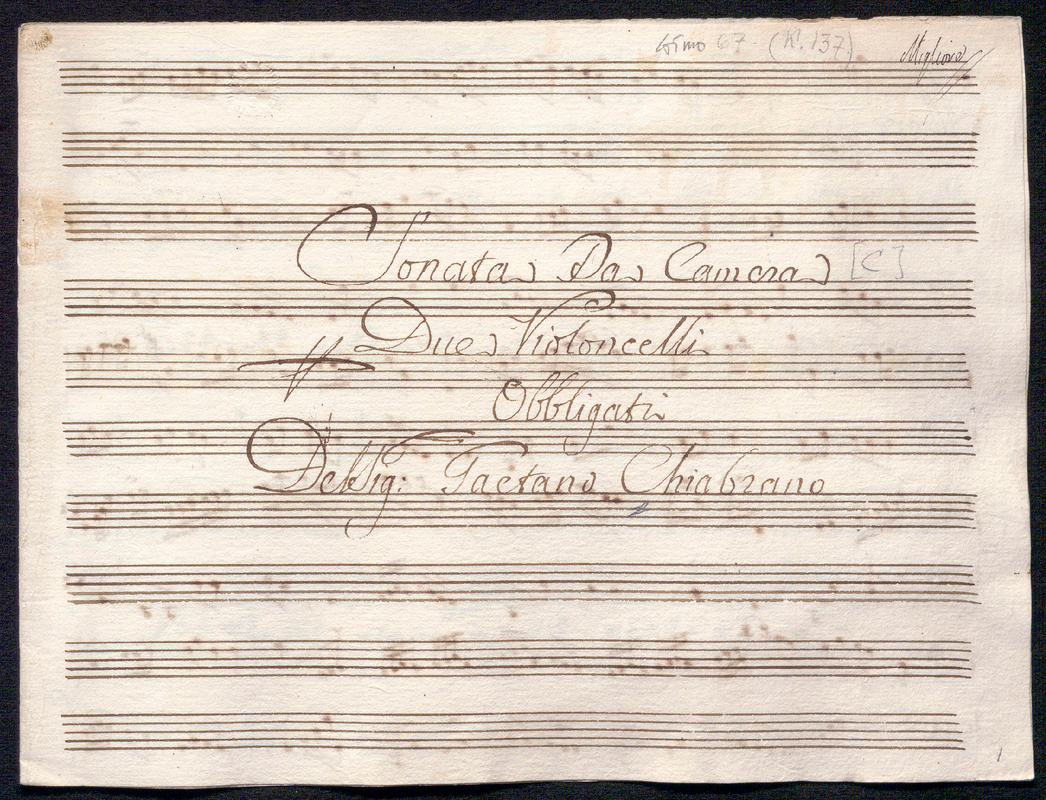 67 - (N. 137)
Migliore
Sonata Da Camera [C]
Due Violoncelli
Obbligati
Del Sig: Gaetano Chiabrano
1